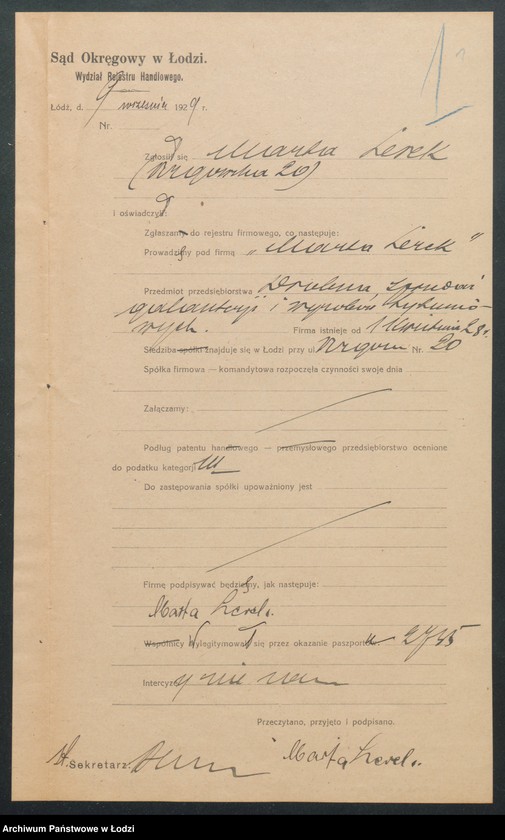 1
Sąd Okręgowy w Łodzi.
Wydział Rejestru Handlowego.
Łódź, d. 9 września 1929 r.
Nr.
Zgłosił się Marta Lesek
20)
i oświadczył:
Zgłaszam do rejestru firmowego, co następuje:
Prowadzimy pod firmą „Marta Lesek"
Przedmiot przedsiębiorstwa Drobna sprzedaż
galanterji i wyrobów tytunio-
wych. Firma istnieje od 1 28 r.
Siedziba spółki znajduje się w Łodzi przy ul. Nr. 20
Spółka firmowa — komandytowa rozpoczęła czynności swoje dnia
Załączamy:
Podług patentu handlowego — przemysłowego przedsiębiorstwo ocenione
do podatku kategorji III
Do zastępowania spółki upoważniony jest
Firmę podpisywać będziemy, jak następuje:
Marta
Wspólnicy Wylegitymował się przez okazanie paszportu 2745
Intercyzy nie mam
Przeczytano, przyjęto i podpisano.
Sekretarz: Marta
Archiwum Państwowe w Łodzi